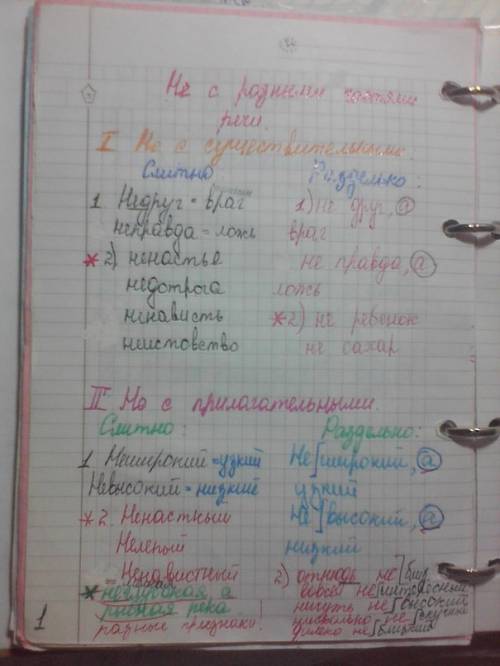 Не с разными частями
речи.
I Не с существительными.
Слитно Раздельно:
1 Недруг = враг 1) не друг, а
неправда = ложь враг
* 2) ненастье не правда, а
недотрога ложь
ненависть * 2) не ребенок
неистовство не сахар
II Не с прилагательными.
Слитно: Раздельно:
1 Неширокий = узкий Не широкий, а
Невысокий = низкий узкий
* 2. Ненастный Не высокий, а
Нелепый низкий
Ненавистный 2) отнюдь не
* неглубокая, а вовсе не интересный
рыбная река ничуть не высокий
разные признаки. нисколько не скучный
1 далеко не близкий